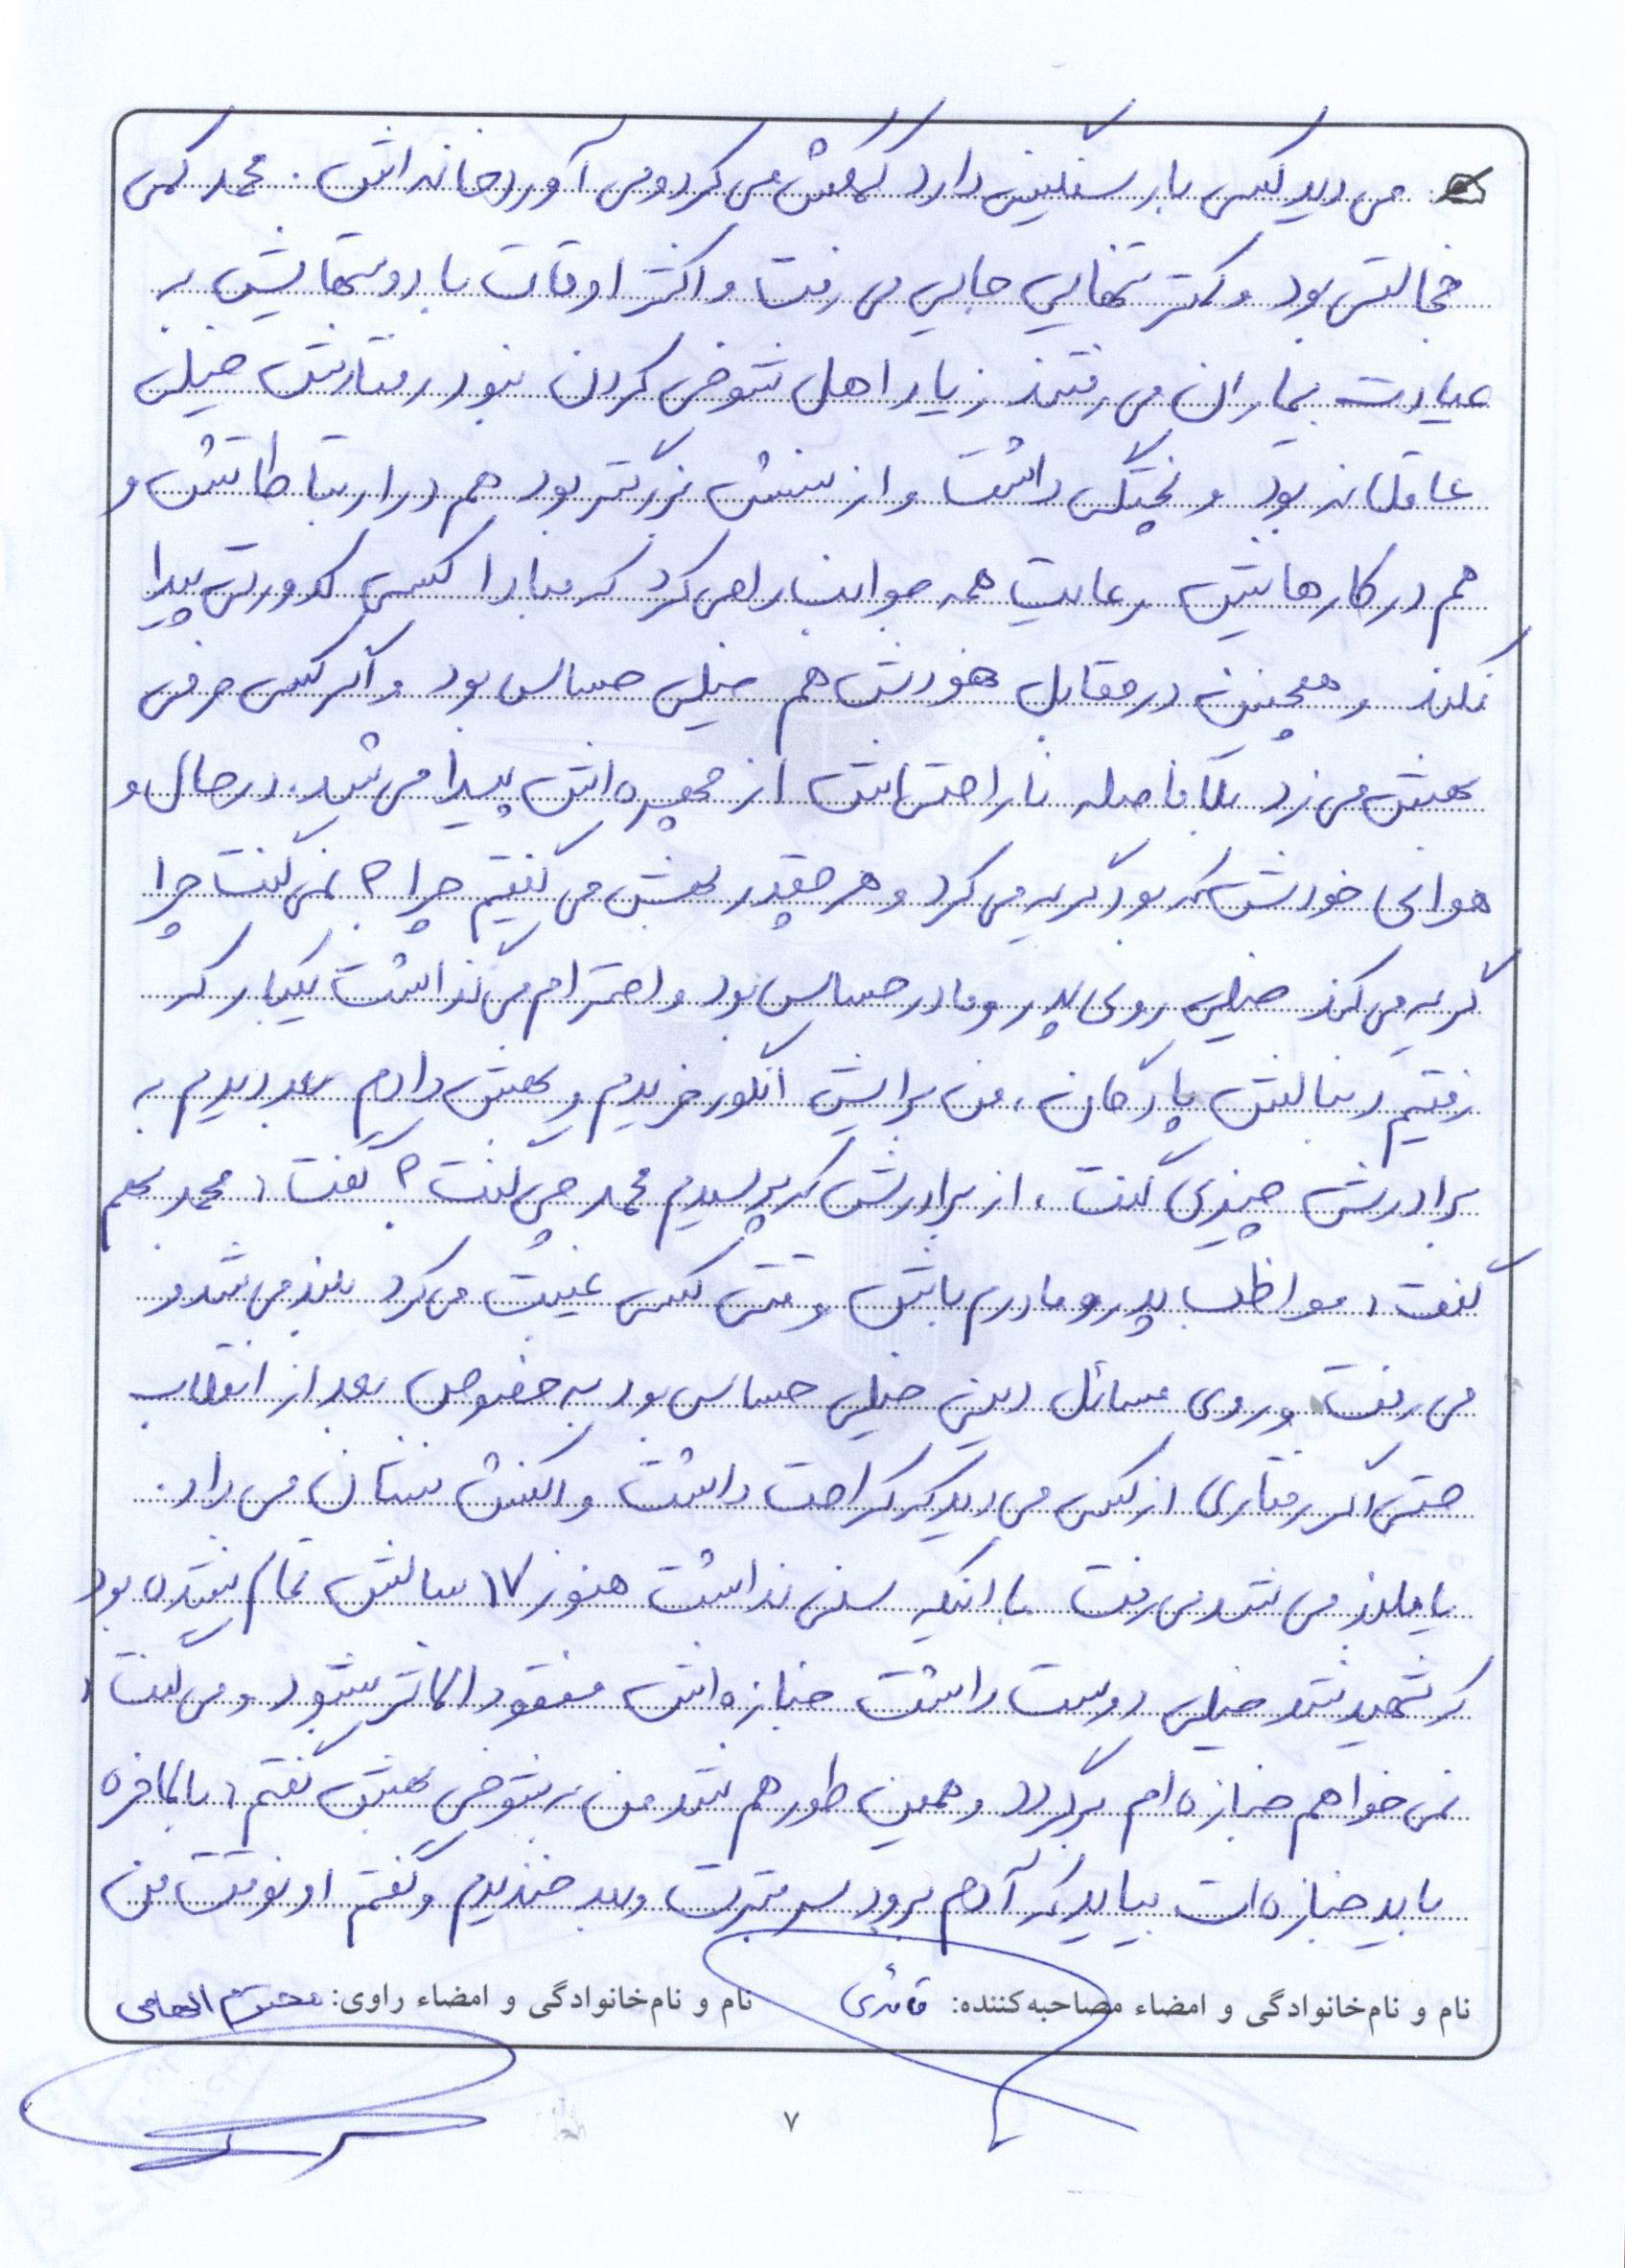 می دید کسی بار سنگینی دارد کمکش می کرد و می آورد خانه اش. محمد کمی
خجالتی بود و کمتر تنهایی جایی می رفت و اکثر اوقات با دوستهایش به
عیادت بیماران می رفتند زیاد اهل شوخی کردن نبود رفتارش خیلی
عاقلانه بود و پختگی داشت و از سنش بزرگتر بود هم در ارتباطاتش و
هم در کارهایش رعایت همه جوانب را می کرد که مبادا کسی کدورتی پیدا
نکند و همچنین در مقابل خودش هم خیلی حساس بود و اگر کسی حرفی
بهش می زد بلافاصله ناراحتی اش از چهره اش پیدا می شد. در حال و
هوای خودش که بود گریه می کرد و هر چقدر بهش می گفتیم چرا؟ نمی گفت چرا
گریه می کند خیلی روی پدر و مادر حساس بود و احترام می گذاشت یکبار که
رفتیم دنبالش پادگان، من برایش انگور خریدم و بهش دادم بعد دیدم به
برادرش چیزی گفت، از برادرش که پرسیدم محمد چی گفت؟ گفت: محمد بهم
گفت: مواظب پدر و مادرم باش وقتی کسی غیبت می کرد بلند می شد و
می رفت و روی مسائل دینی خیلی حساس بود به خصوص بعد از انقلاب
حتی اگر رفتاری از کسی می دید که کراهت داشت واکنش نشان می داد.
یا بلند می شد می رفت با اینکه سنی نداشت هنوز ۱۷ سالش تمام نشده بود
که شهید شد خیلی دوست داشت جنازه اش مفقود الاثر بشود و می گفت:
نمی خواهم جنازه ام برگردد و همین طور هم شد من به شوخی بهش گفتم: بالاخره
باید جنازه ات بیاید که آدم برود سر قبرت و بعد خندیدم و گفتم اونوقت من
نام و نام‌خانوادگی و امضاء مصاحبه‌کننده: قائدی نام و نام‌خانوادگی و امضاء راوی: محترم الهامی
۷